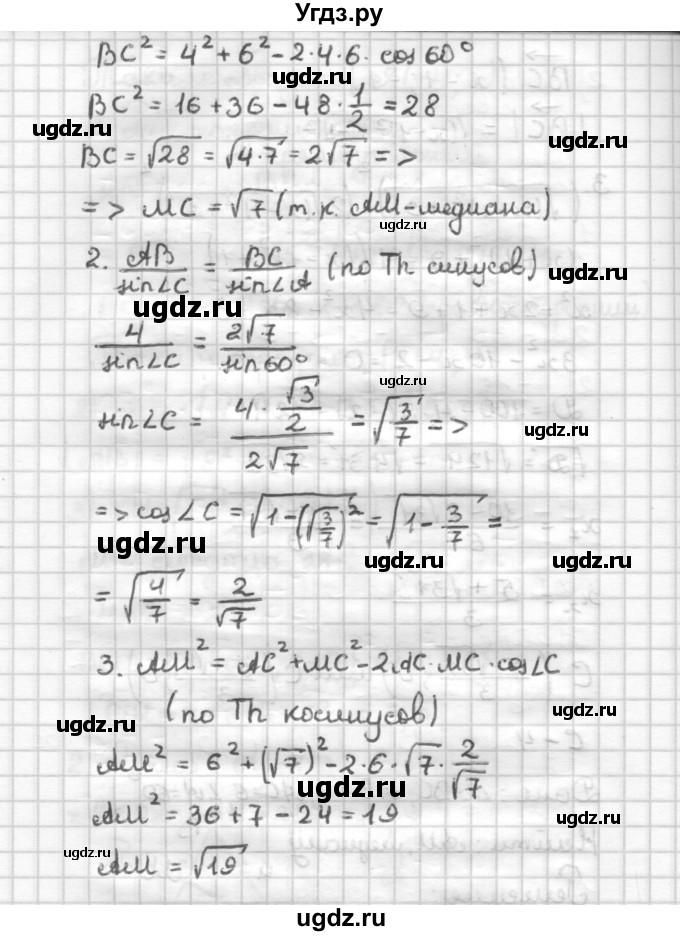 Угдз.ру
BC² = 4² + 6² - 2·4·6· cos 60°
ugdz.ru
BC² = 16 + 36 - 48 · 1/2 = 28
ugdz.ru
ugdz.ru
ugdz.ru
BC = √28 = √4·7 = 2√7 =>
=> MC = √7 (т.к. AM-медиана)
ugdz.ru
2. AB/sin∠C = BC/sin∠A (по Th синусов)
ugdz.ru
ugdz.ru
4/sin∠C = 2√7/sin 60°
ugdz.ru
sin∠C = (4 · √3/2)/(2√7) = √(3/7) =>
ugdz.ru
=> cos∠C = √(1-(√(3/7))²) = √(1 - 3/7) =
ugdz.ru
ugdz.ru
ugdz.ru
= √(4/7) = 2/√7
ugdz.ru
3. AM² = AC² + MC² - 2AC·MC·cos∠C
(по Th косинусов)
ugdz.ru
ugdz.ru
AM² = 6² + (√7)² - 2·6·√7 · 2/√7
ugdz.ru
AM² = 36 + 7 - 24 = 19
ugdz.ru
ugdz.ru
AM = √19
ugdz.ru